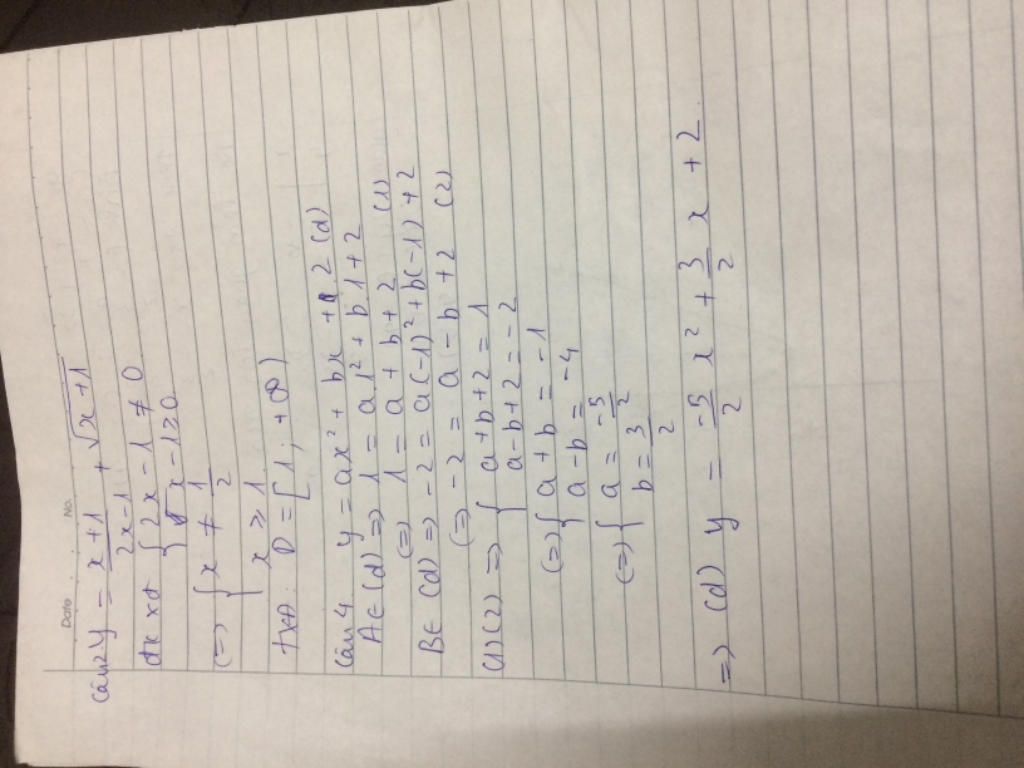 Date No.
câu 2 y = x+1 / 2x-1 + √x+1
đk xđ { 2x - 1 ≠ 0
x - 1 ≥ 0
(=) { x ≠ 1/2
x ≥ 1
TXĐ: D = [1; +∞)
câu 4 y = ax² + bx + 2 (d)
A ∈ (d) => 1 = a1² + b1 + 2
(=) 1 = a + b + 2 (1)
B ∈ (d) => -2 = a(-1)² + b(-1) + 2
(=) -2 = a - b + 2 (2)
(1)(2) => { a + b + 2 = 1
a - b + 2 = -2
(=) { a + b = -1
a - b = -4
(=) { a = -5/2
b = 3/2
=> (d) y = -5/2 x² + 3/2 x + 2